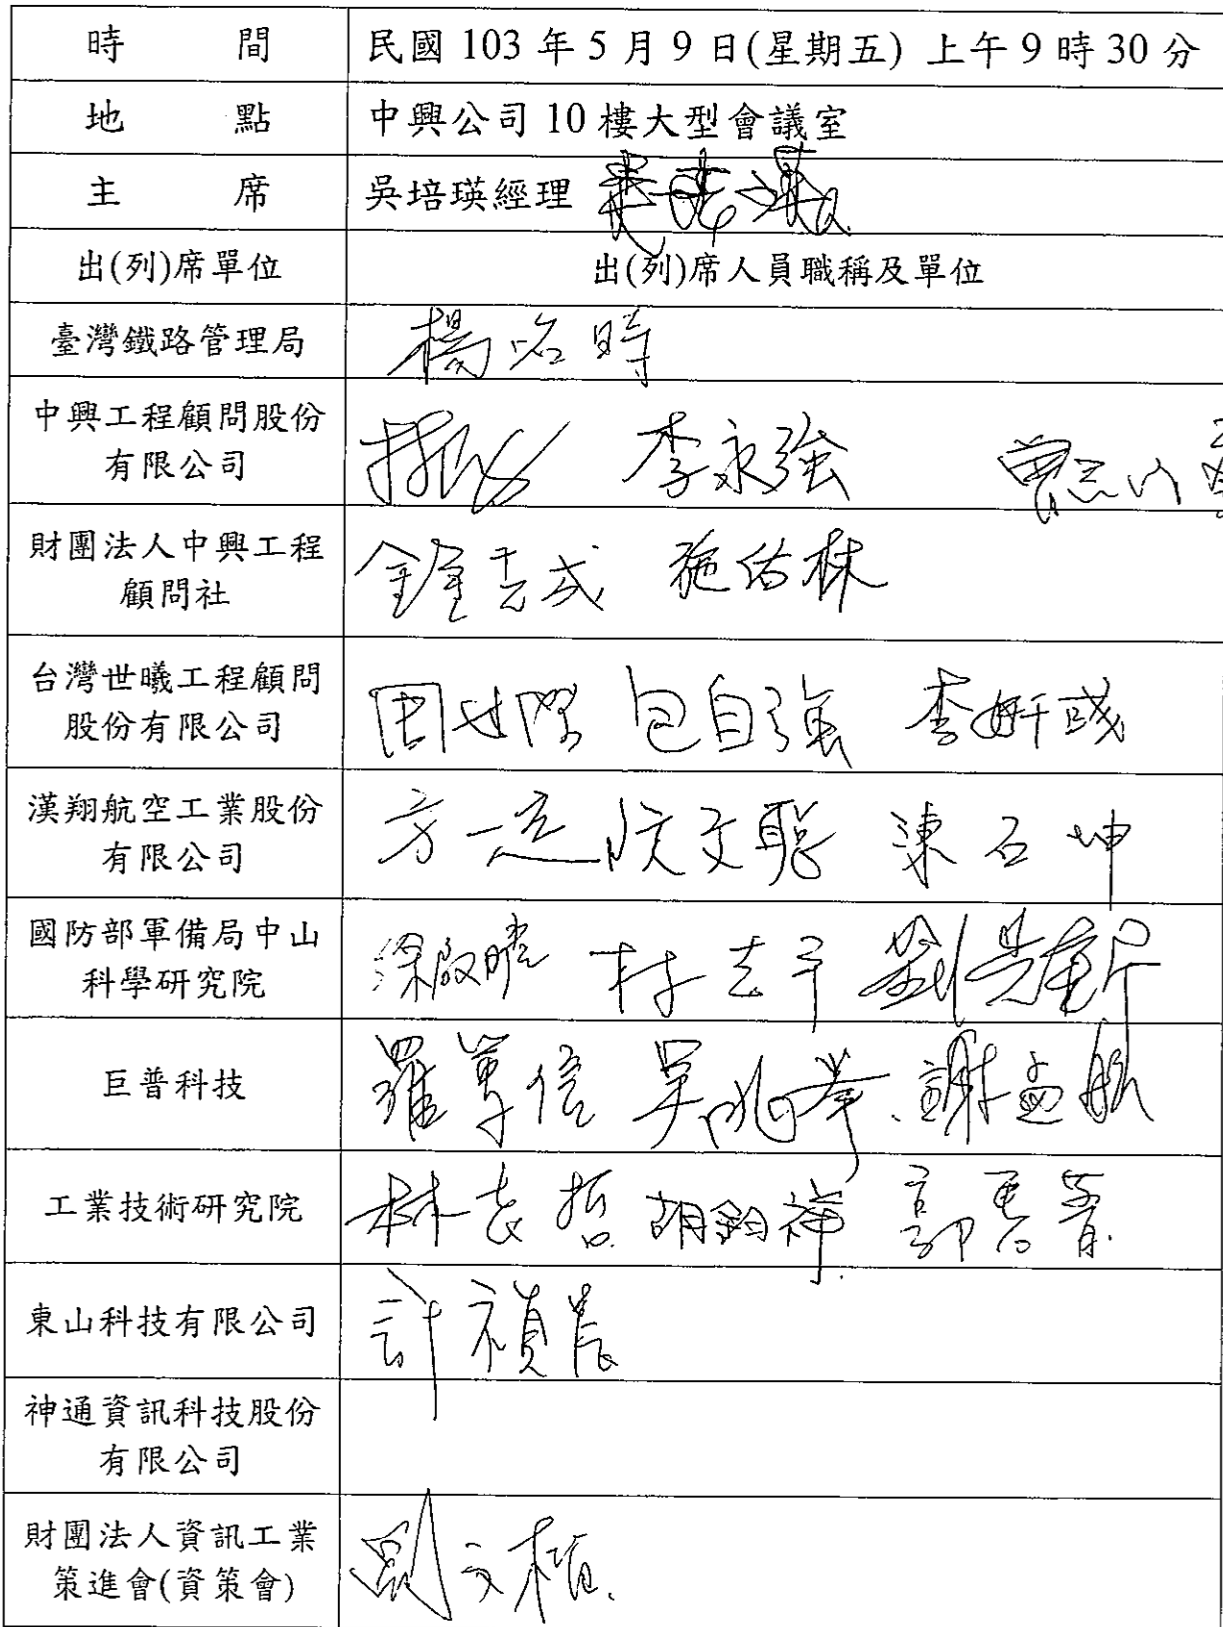 時 間 民國 103 年 5 月 9 日(星期五) 上午 9 時 30 分
地 點 中興公司 10 樓大型會議室
主 席 吳培瑛經理
出(列)席單位 出(列)席人員職稱及單位
臺灣鐵路管理局 楊名時
中興工程顧問股份
有限公司
李永強
財團法人中興工程
顧問社
鍾志成 施佑林
台灣世曦工程顧問
股份有限公司
周世傑 包自強
漢翔航空工業股份
有限公司
陳石坤
國防部軍備局中山
科學研究院
巨普科技 羅單信 謝孟
工業技術研究院 林志哲 胡鈞祥
東山科技有限公司 許禎晨
神通資訊科技股份
有限公司
財團法人資訊工業
策進會(資策會)
劉文植